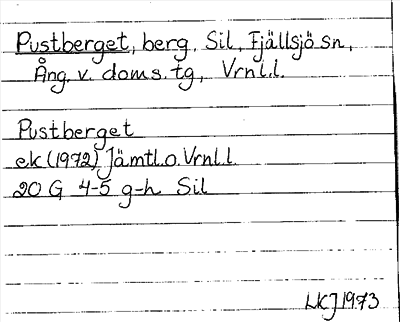 Pustberget, berg, Sil, Fjällsjö sn,
Ång. v. doms. tg, Vrnl.l.
Pustberget
ek (1972) Jämtl.o.Vrnl.l
20 G 4-5 g-h Sil
LKJ 1973